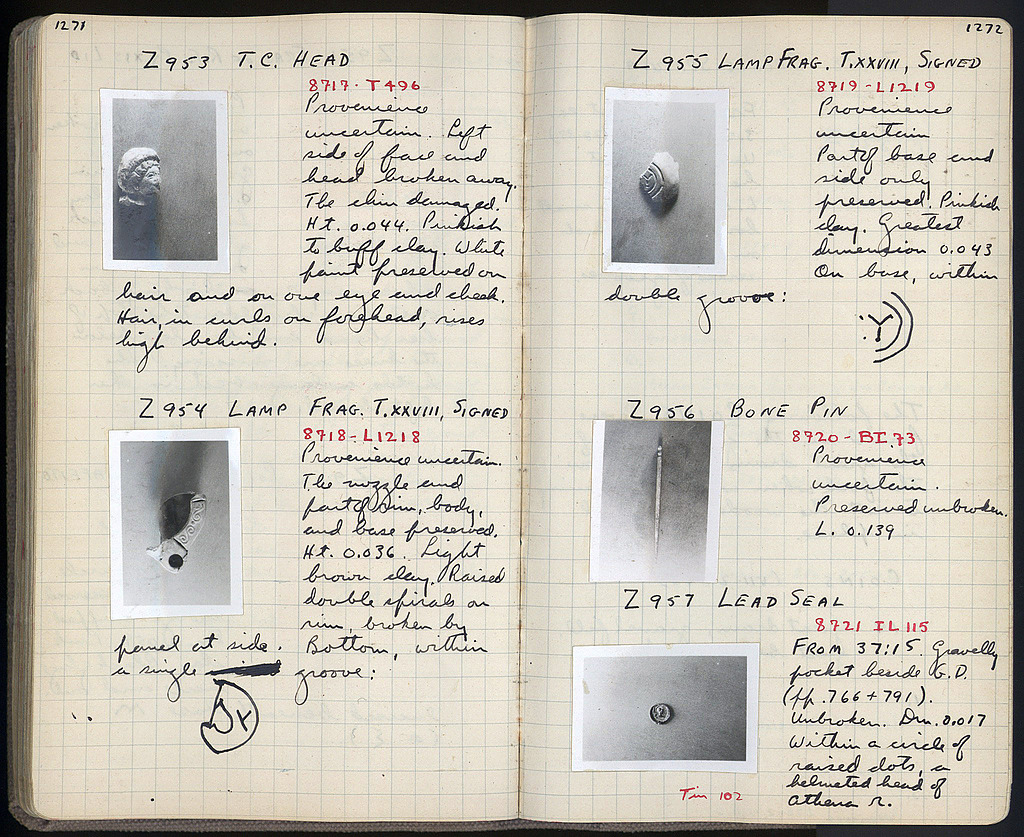 1271
Z 953 T.C. HEAD
8717 - T 496
Provenience
uncertain. Left
side of face and
head broken away.
The chin damaged.
Ht. 0.044. Pinkish
to buff clay. White
paint preserved on
hair and on one eye and cheek.
Hair, in curls on forehead, rises
high behind.
Z 954 LAMP FRAG. T.XXVIII, SIGNED
8718 - L1218
Provenience uncertain.
The nozzle and
part of rim, body,
and base preserved.
Ht. 0.036. Light
brown clay. Raised
double spirals on
rim, broken by
panel at side. Bottom, within
a single groove:
1272
Z 955 LAMP FRAG. T.XXVIII, SIGNED
8719 - L1219
Provenience
uncertain
Part of base and
side only
preserved. Pinkish
clay. Greatest
dimension 0.043
On base, within
double groove:
Z 956 BONE PIN
8720 - BI 73
Provenience
uncertain.
Preserved unbroken.
L. 0.139
Z 957 LEAD SEAL
8721 IL 115
FROM 37:15. Gravelly
pocket beside G.D.
(pp. 766 + 791).
Unbroken. Dm. 0.017
Within a circle of
raised dots, a
helmeted head of
Athena r.
Tin 102